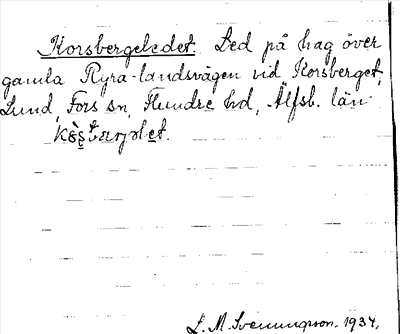 Korsbergeledet. Led på hag över
gamla Ryra-landsvägen vid Korsberget,
Lund, Fors sn, Flundre hd, Älfsb. län
L. M. Svenungsson. 1934.